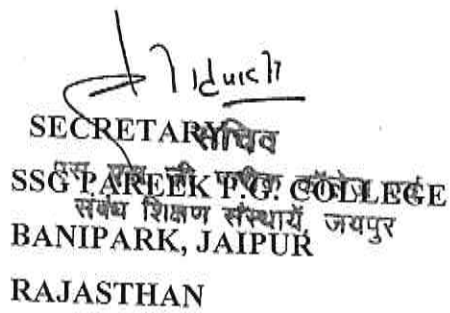 SECRETARY
सचिव
SSG PAREEK P.G. COLLEGE
एस एस जी पारीक कॉलेज एवं
संबंध शिक्षण संस्थायें, जयपुर
BANIPARK, JAIPUR
RAJASTHAN